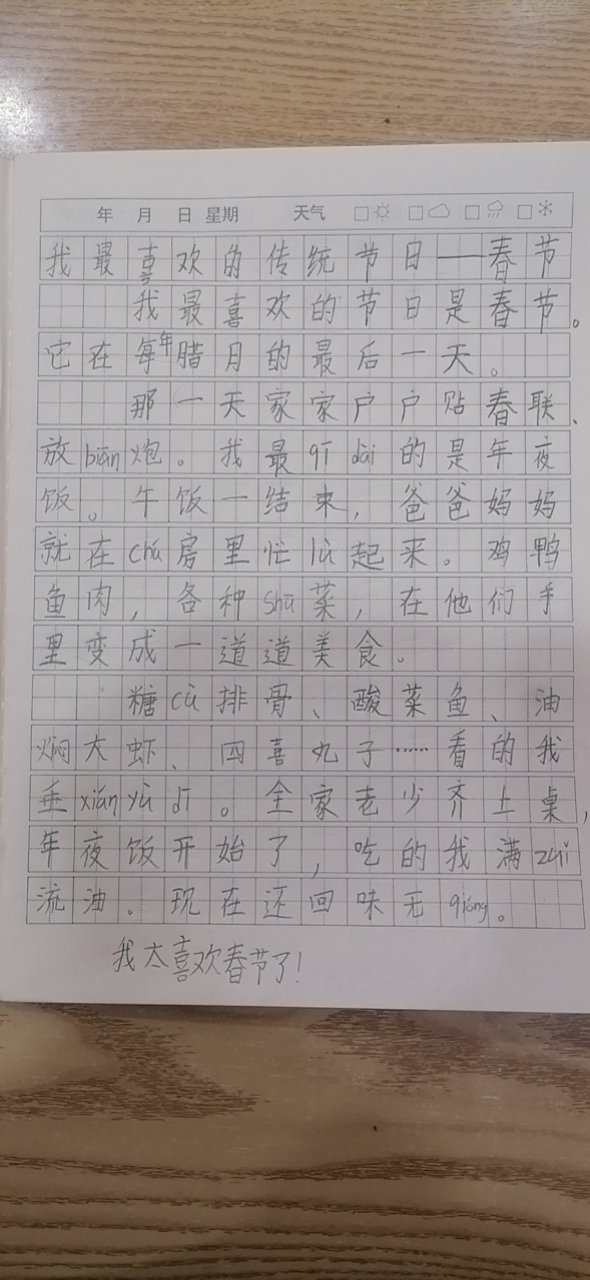 年 月 日 星期 天气
我最喜欢的传统节日——春节
我最喜欢的节日是春节。
它在每年腊月的最后一天。
那一天家家户户贴春联、
放biān炮。我最qī dài的是年夜
饭。午饭一结束，爸爸妈妈
就在chú房里忙lù起来。鸡鸭
鱼肉，各种shū菜，在他们手
里变成一道道美食。
糖cù排骨、酸菜鱼、油
焖大虾、四喜丸子……看的我
垂xián yù dī。全家老少齐上桌，
年夜饭开始了，吃的我满zuǐ
流油。现在还回味无qióng。
我太喜欢春节了！